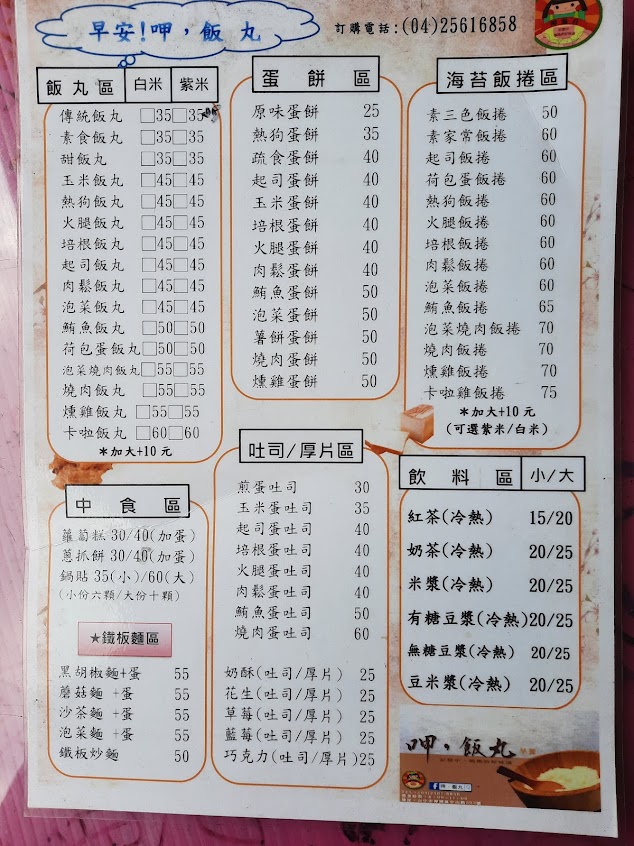 早安!呷,飯丸
訂購電話:(04)25616858
飯丸區 白米 紫米
傳統飯丸 □35□35
素食飯丸 □35□35
甜飯丸 □35□35
玉米飯丸 □45□45
熱狗飯丸 □45□45
火腿飯丸 □45□45
培根飯丸 □45□45
起司飯丸 □45□45
肉鬆飯丸 □45□45
泡菜飯丸 □45□45
鮪魚飯丸 □50□50
荷包蛋飯丸□50□50
泡菜燒肉飯丸□55□55
燒肉飯丸 □55□55
燻雞飯丸 □55□55
卡啦飯丸 □60□60
*加大+10元
蛋餅區
原味蛋餅 25
熱狗蛋餅 35
蔬食蛋餅 40
起司蛋餅 40
玉米蛋餅 40
培根蛋餅 40
火腿蛋餅 40
肉鬆蛋餅 40
鮪魚蛋餅 50
泡菜蛋餅 50
薯餅蛋餅 50
燒肉蛋餅 50
燻雞蛋餅 50
海苔飯捲區
素三色飯捲 50
素家常飯捲 60
起司飯捲 60
荷包蛋飯捲 60
熱狗飯捲 60
火腿飯捲 60
培根飯捲 60
肉鬆飯捲 60
泡菜飯捲 60
鮪魚飯捲 65
泡菜燒肉飯捲 70
燒肉飯捲 70
燻雞飯捲 70
卡啦雞飯捲 75
*加大+10元
(可選紫米/白米)
中食區
蘿蔔糕30/40(加蛋)
蔥抓餅30/40(加蛋)
鍋貼35(小)/60(大)
(小份六顆/大份十顆)
★鐵板麵區
黑胡椒麵+蛋 55
蘑菇麵 +蛋 55
沙茶麵 +蛋 55
泡菜麵 +蛋 55
鐵板炒麵 50
吐司/厚片區
煎蛋吐司 30
玉米蛋吐司 35
起司蛋吐司 40
培根蛋吐司 40
火腿蛋吐司 40
肉鬆蛋吐司 40
鮪魚蛋吐司 50
燒肉蛋吐司 60
奶酥(吐司/厚片) 25
花生(吐司/厚片) 25
草莓(吐司/厚片) 25
藍莓(吐司/厚片) 25
巧克力(吐司/厚片)25
飲料區 小/大
紅茶(冷熱) 15/20
奶茶(冷熱) 20/25
米漿(冷熱) 20/25
有糖豆漿(冷熱)20/25
無糖豆漿(冷熱) 20/25
豆米漿(冷熱) 20/25
呷,飯丸